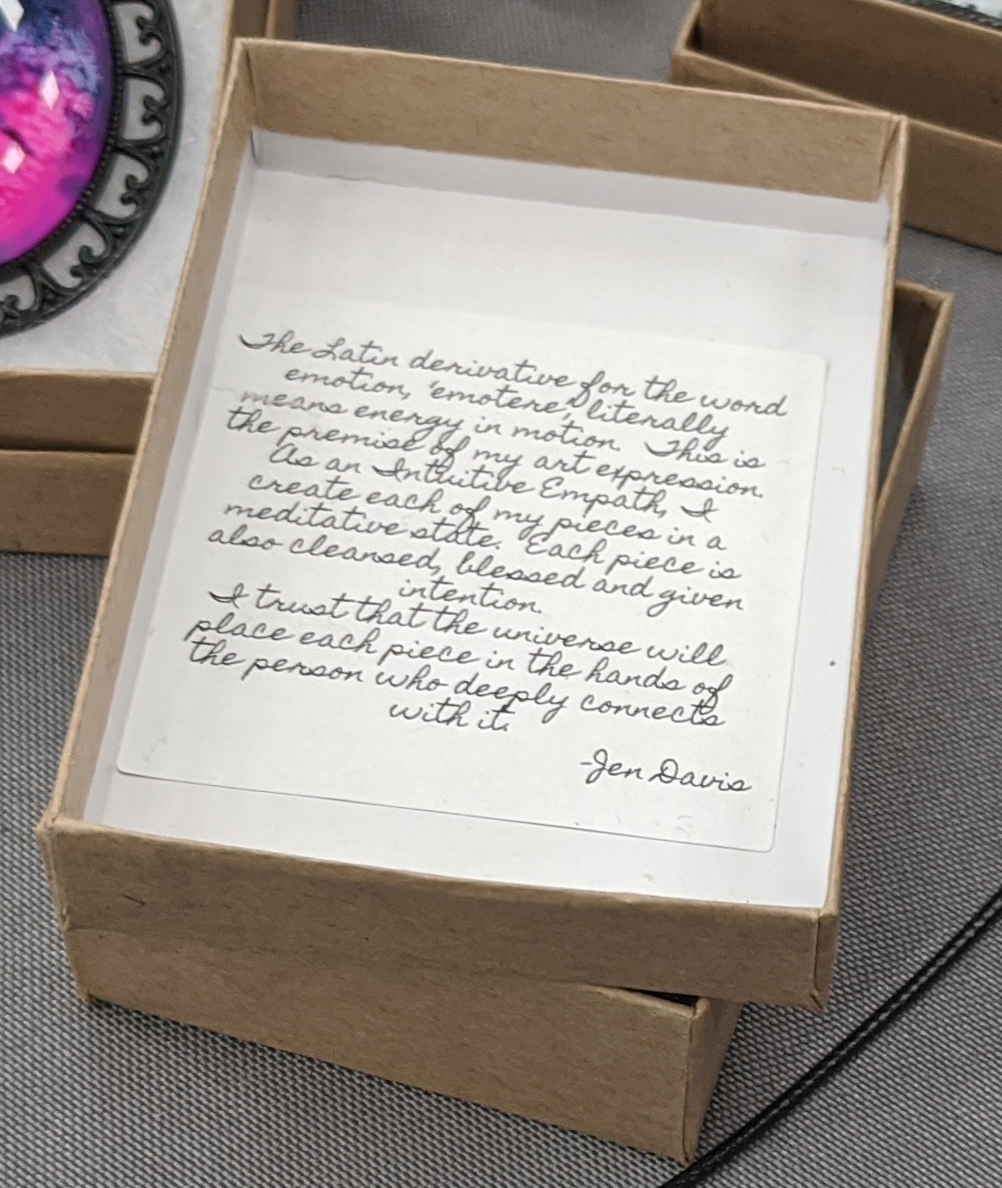 The Latin derivative for the word
emotion, 'emotere', literally
means energy in motion. This is
the premise of my art expression.
As an Intuitive Empath, I
create each of my pieces in a
meditative state. Each piece is
also cleansed, blessed and given
intention.
I trust that the universe will
place each piece in the hands of
the person who deeply connects
with it.
-Jen Davis